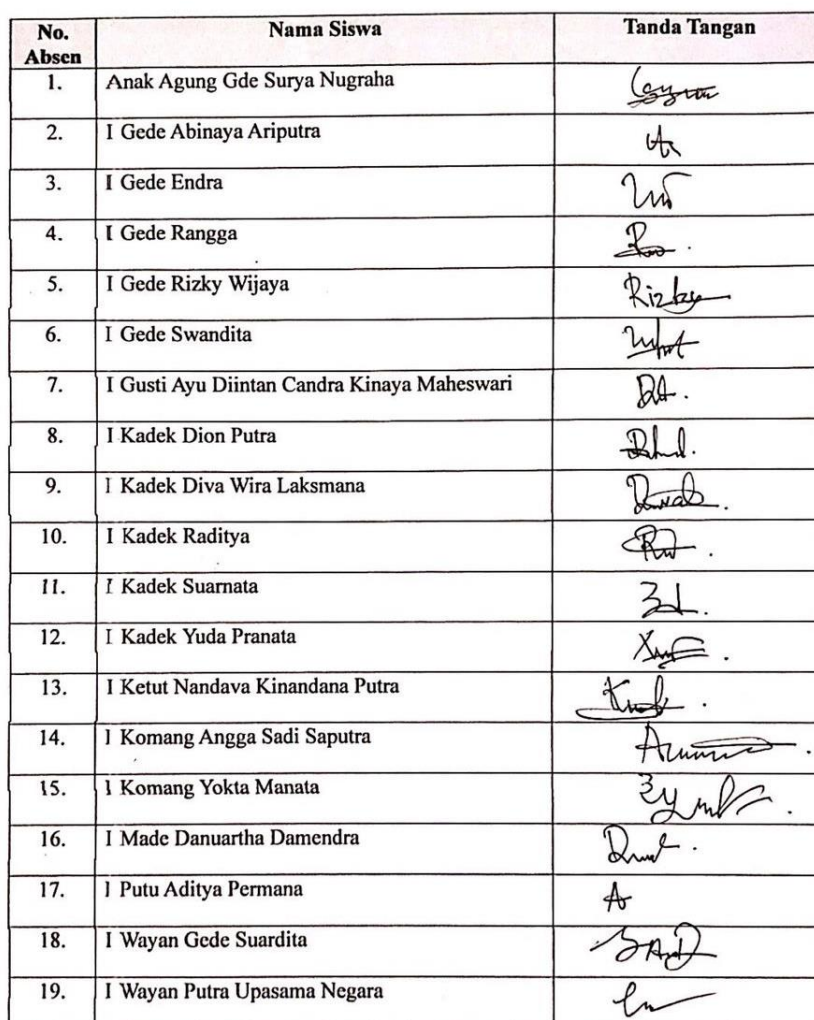 No. Absen Nama Siswa Tanda Tangan
1. Anak Agung Gde Surya Nugraha
2. I Gede Abinaya Ariputra
3. I Gede Endra
4. I Gede Rangga
5. I Gede Rizky Wijaya Rizky
6. I Gede Swandita
7. I Gusti Ayu Diintan Candra Kinaya Maheswari
8. I Kadek Dion Putra
9. I Kadek Diva Wira Laksmana
10. I Kadek Raditya
11. I Kadek Suarnata
12. I Kadek Yuda Pranata
13. I Ketut Nandava Kinandana Putra
14. I Komang Angga Sadi Saputra
15. I Komang Yokta Manata
16. I Made Danuartha Damendra
17. I Putu Aditya Permana
18. I Wayan Gede Suardita
19. I Wayan Putra Upasama Negara